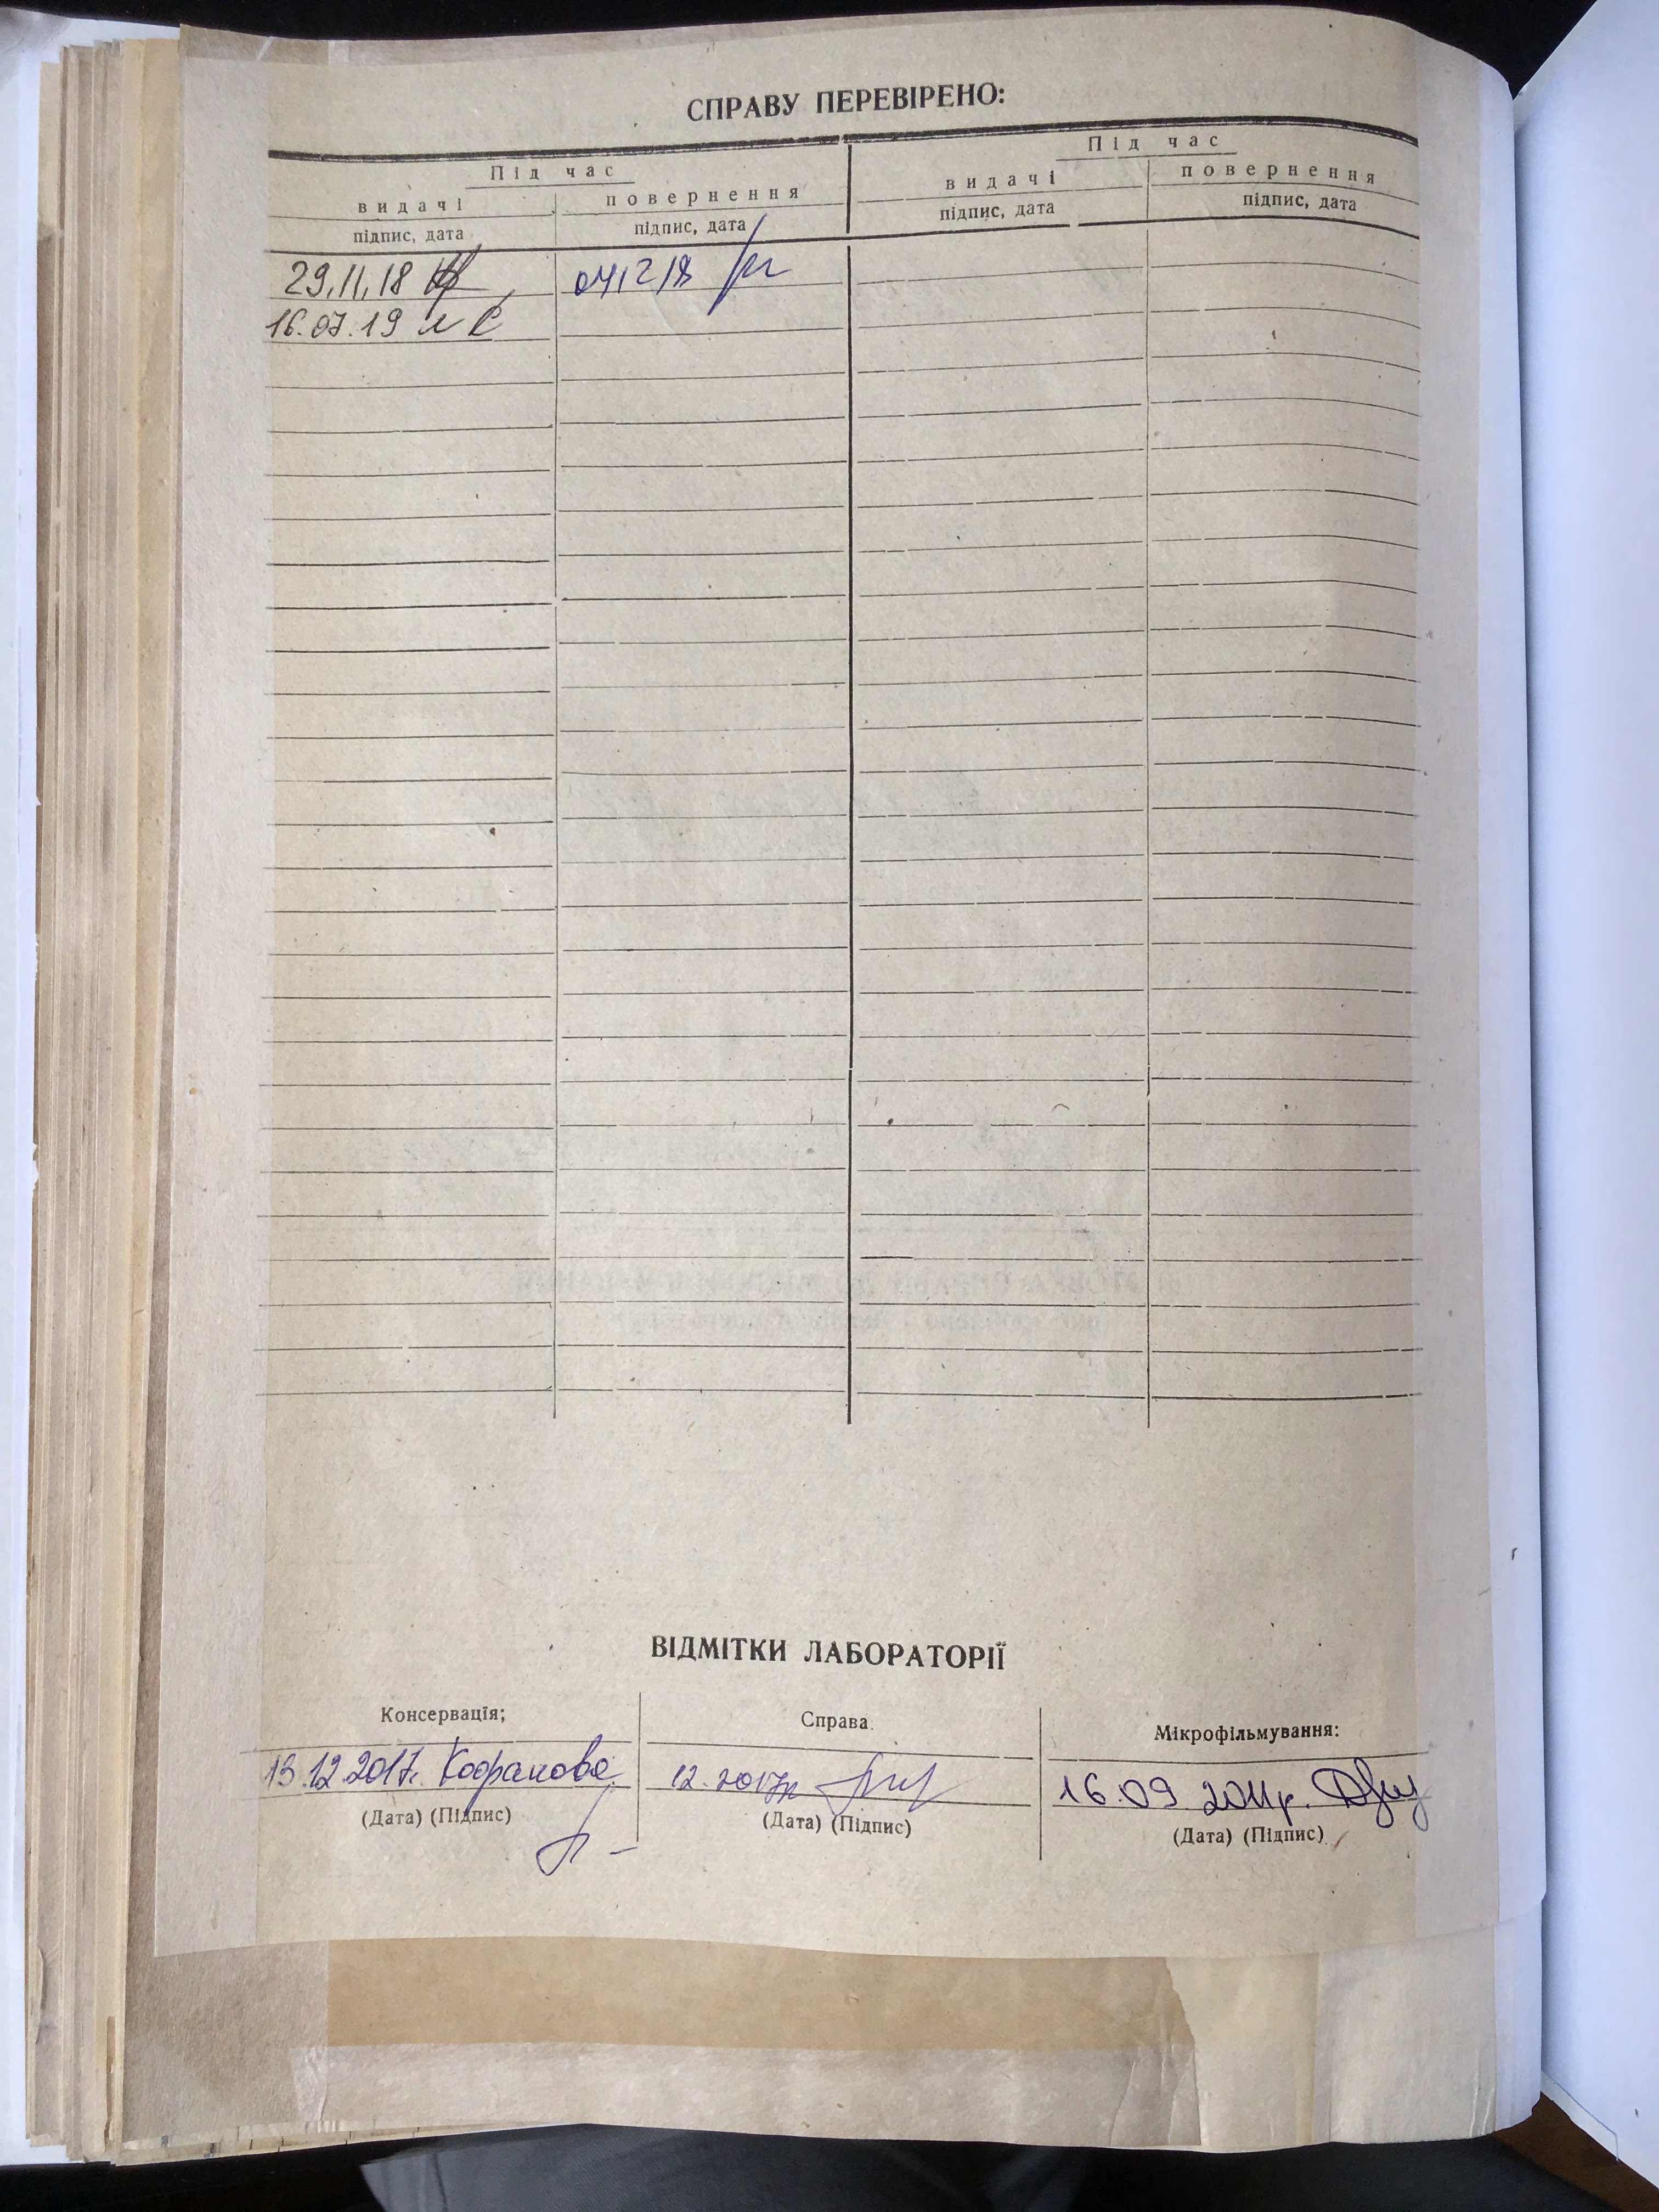 СПРАВУ ПЕРЕВІРЕНО:
Під час Під час
видачі повернення видачі повернення
підпис, дата підпис, дата підпис, дата підпис, дата
29.11.18 04.12.18
16.07.19
ВІДМІТКИ ЛАБОРАТОРІЇ
Консервація; Справа. Мікрофільмування:
13.12.2017. 12.2017р 16.09.2011р.
(Дата) (Підпис) (Дата) (Підпис) (Дата) (Підпис)